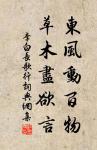 東風動百物
草木盡欲言
李白長歌行詞典網集